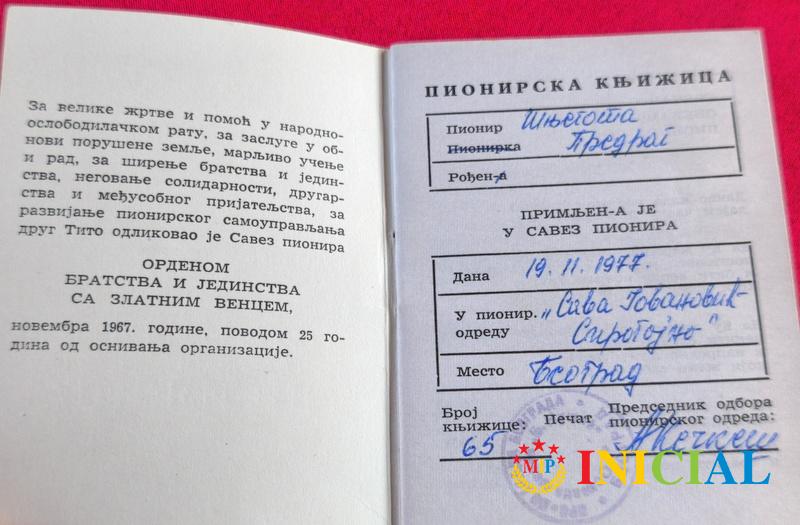 За велике жртве и помоћ у народно-
ослободилачком рату, за заслуге у об-
нови порушене земље, марљиво учење
и рад, за ширење братства и једин-
ства, неговање солидарности, другар-
ства и међусобног пријатељства, за
развијање пионирског самоуправљања
друг Тито одликовао је Савез пионира
ОРДЕНОМ
БРАТСТВА И ЈЕДИНСТВА
СА ЗЛАТНИМ ВЕНЦЕМ,
новембра 1967. године, поводом 25 го-
дина од оснивања организације.
ПИОНИРСКА КЊИЖИЦА
Пионир Шњегота
Пионирка Предраг
Рођен-а
ПРИМЉЕН-А ЈЕ
У САВЕЗ ПИОНИРА
Дана 19. 11. 1977.
У пионир. „Сава Јовановић-
одреду Сиротојно"
Место Београд
Број Печат Председник одбора
књижице: пионирског одреда:
65
MIP INICIAL